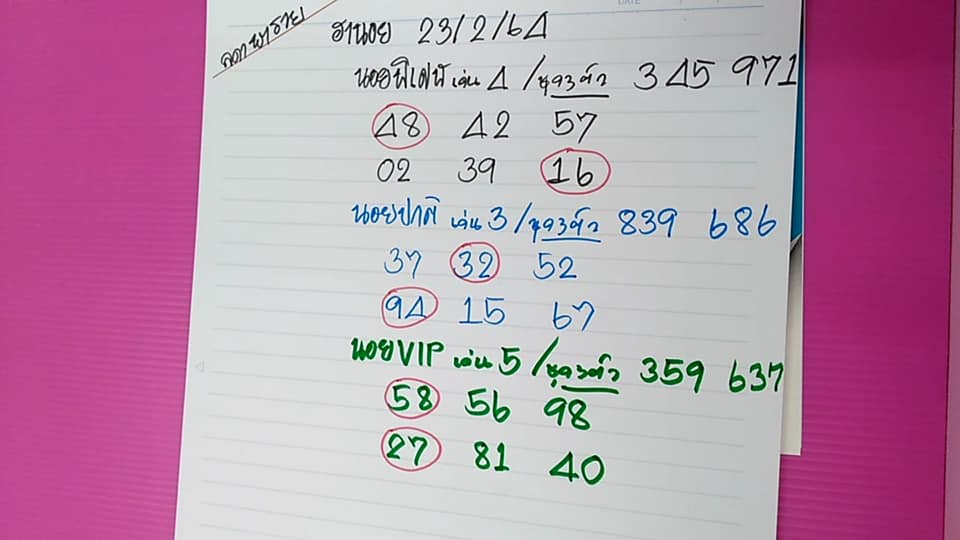 ลดาพารวย
ฮานอย 23/2/64
นอยพิเศษ เด่น 4 / ชุด 3 ตัว 345 971
48 42 57
02 39 16
นอยปกติ เด่น 3 / ชุด 3 ตัว 839 686
37 32 52
94 15 67
นอย VIP เด่น 5 / ชุด 3 ตัว 359 637
58 56 98
27 81 40